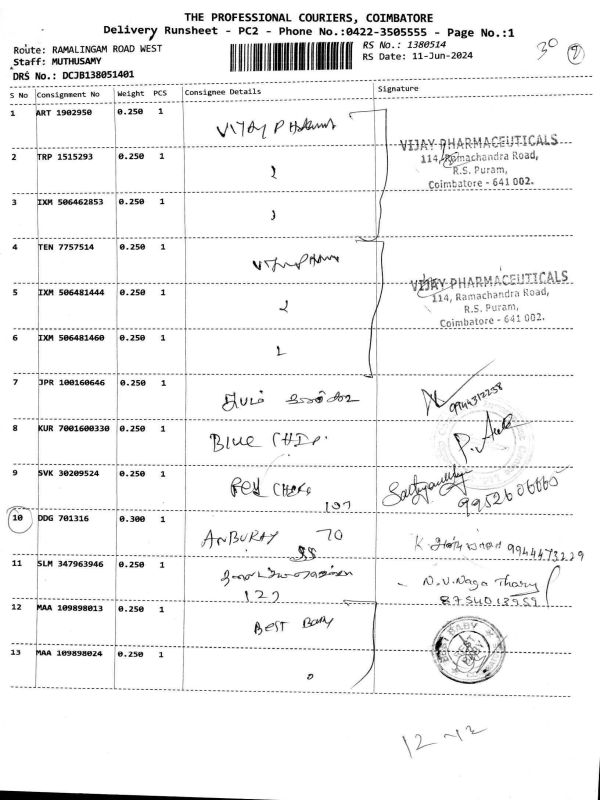 THE PROFESSIONAL COURIERS, COIMBATORE
Delivery Runsheet - PC2 - Phone No.:0422-3505555 - Page No.:1
Route: RAMALINGAM ROAD WEST
Staff: MUTHUSAMY
DRS No.: DCJB138051401
RS No.: 1380514
RS Date: 11-Jun-2024
30
S No Consignment No Weight PCS Consignee Details Signature
1 ART 1902950 0.250 1 VIJAY PHARMA
VIJAY PHARMACEUTICALS
114, Ramachandra Road,
R.S. Puram,
Coimbatore - 641 002.
2 TRP 1515293 0.250 1
3 IXM 506462853 0.250 1
4 TEN 7757514 0.250 1
VIJAY PHARMACEUTICALS
114, Ramachandra Road,
R.S. Puram,
Coimbatore - 641 002.
5 IXM 506481444 0.250 1
6 IXM 506481460 0.250 1
7 JPR 100160646 0.250 1 9944312258
8 KUR 7001600330 0.250 1 BLUE CHIP
9 SVK 30209524 0.250 1
9952606665
10 DDG 701316 0.300 1 ANBURAY 70
9944473229
11 SLM 347963946 0.250 1 N.V.Naga
127
8754013959
12 MAA 109898013 0.250 1 BEST Baby
13 MAA 109898024 0.250 1
12